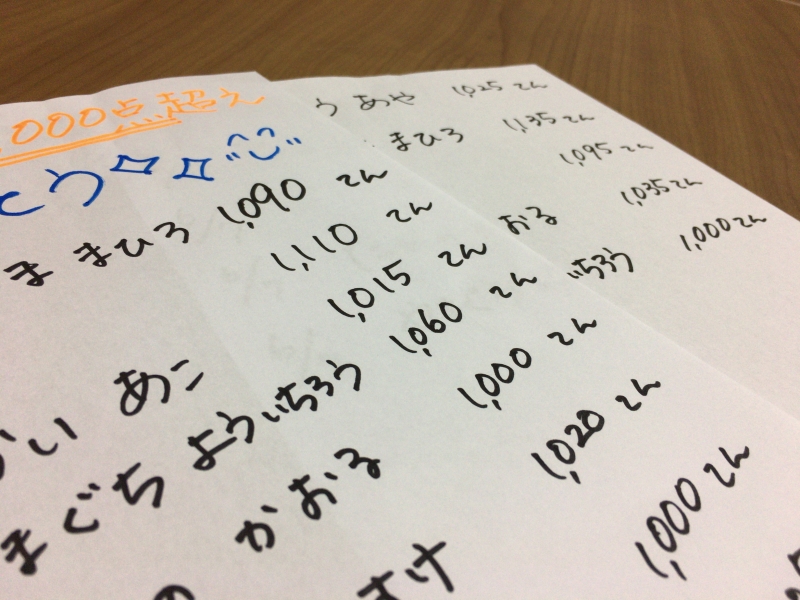 ,000点超え
とう
ま まひろ 1,090 てん
1,110 てん
かい あこ 1,015 てん
まぐち よういちろう 1,060 てん
の かおる 1,000 てん
すけ 1,020 てん
1,000 てん
う あや 1,025 てん
まひろ 1,135てん
1,095 てん
おる 1,035てん
いちろう 1,000てん